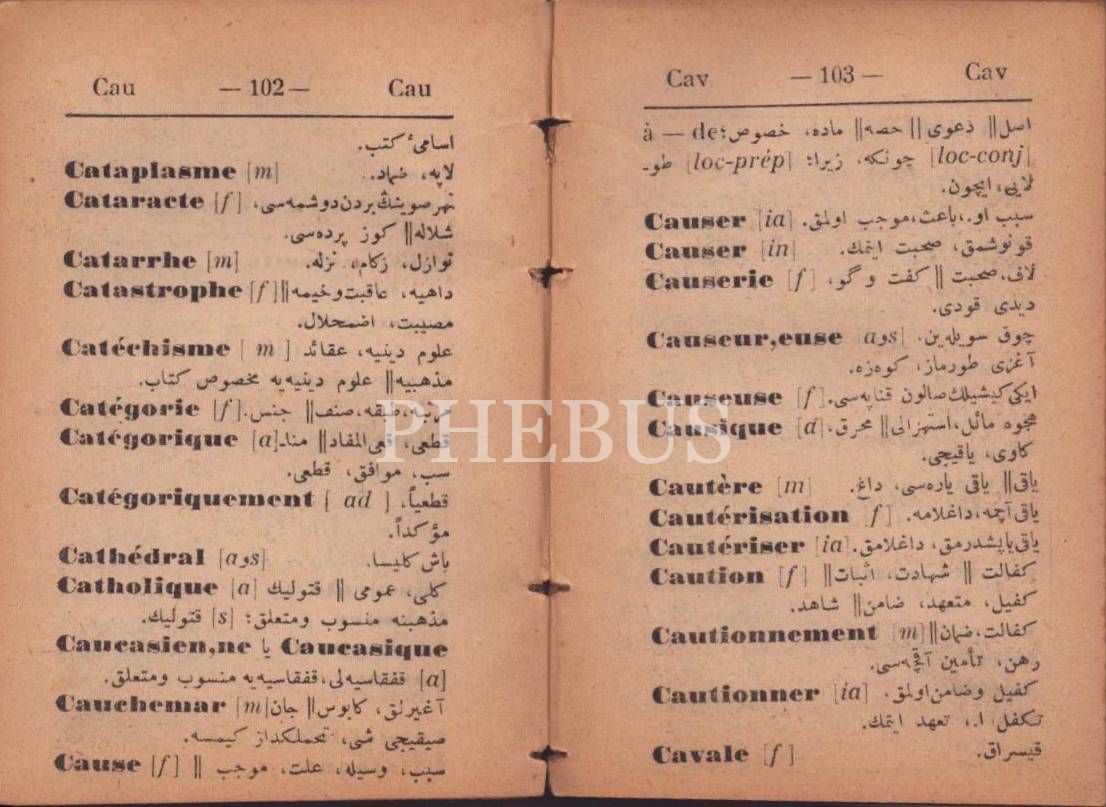 Cau — 102 — Cau
اسامیٔ کتب.
Cataplasme [m] لاپه، ضماد.
Cataracte [f] نهر صوینڭ بردن دوشمه‌سی،
شلاله‖ کوز پرده‌سی.
Catarrhe [m] توازل، زکام، نزله.
Catastrophe [f] داهیه، عاقبت وخیمه‖
مصیبت، اضمحلال.
Catéchisme [m] علوم دینیه، عقائد
مذهبیه‖ علوم دینیه‌یه مخصوص کتاب.
Catégorie [f] مرتبه، طبقه، صنف‖ جنس.
Catégorique [a] قطعی، قعی المفاد‖ منا-
سب، موافق، قطعی.
Catégoriquement [ad] قطعیاً،
مؤکداً.
Cathédral [a و s] باش کلیسا.
Catholique [a] کلی، عمومی ‖ قتولیك
مذهبنه منسوب ومتعلق؛ [s] قتولیك.
Caucasien,ne یا Caucasique
[a] قفقاسیه‌لی، قفقاسیه‌یه منسوب ومتعلق.
Cauchemar [m] آغیرلق، کابوس‖ جان
صیقیجی شی، تحملکداز کیمسه.
Cause [f] سبب، وسیله، علت، موجب ‖
Cav — 103 — Cav
اصل‖ دعوی ‖ حصه‖ ماده، خصوص؛ à — de
[loc-conj] چونکه، زیرا؛ [loc-prép] طو-
لایی، ایچون.
Causer [ia] سبب او.، باعث، موجب اولمق.
Causer [in] قونوشمق، صحبت ایتمك.
Causerie [f] لاف، صحبت ‖ کفت و گو،
دیدی قودی.
Causeur,euse [a و s] چوق سویله‌ین.
آغزی طورماز، کوه‌زه.
Causeuse [f] ایکی کیشیلك صالون قناپه‌سی.
Causique [a] هجوه مائل، استهزالی‖ محرق،
کاوی، یاقیجی.
Cautère [m] یاقی‖ یاقی یاره‌سی، داغ.
Cautérisation [f] یاقی آچمه، داغلامه.
Cautériser [ia] یاقی یاپشدرمق، داغلامق.
Caution [f] کفالت ‖ شهادت، اثبات‖
کفیل، متعهد، ضامن‖ شاهد.
Cautionnement [m] کفالت، ضمان‖
رهن، تأمین آقچه‌سی.
Cautionner [ia] کفیل وضامن اولمق،
تکفل ا.، تعهد ایتمك.
Cavale [f] قیسراق.
PHEBUS